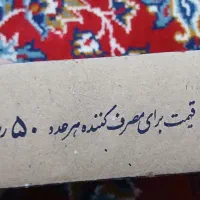 قیمت برای مصرف کننده هر عدد ۵۰